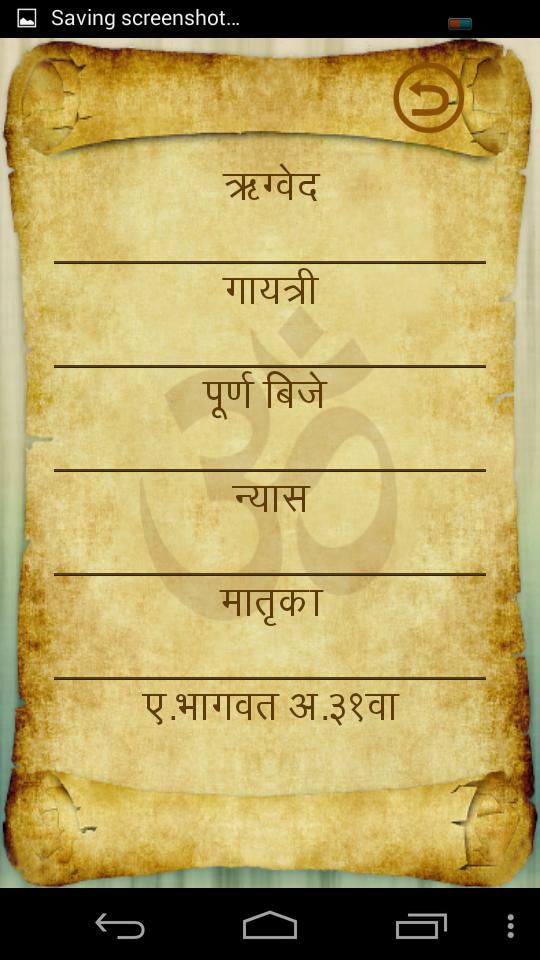 Saving screenshot...
ऋग्वेद
गायत्री
पूर्ण बिजे
न्यास
मातृका
ए.भागवत अ.३१वा